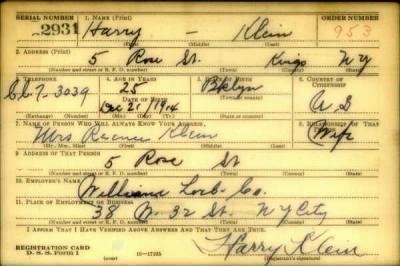 SERIAL NUMBER 1. NAME (Print) ORDER NUMBER
2931 Harry - Klein 953
(First) (Middle) (Last)
2. ADDRESS (Print)
5 Rose St. Kings N Y
(Number and street or R. F. D. number) (Town) (County) (State)
3. TELEPHONE 4. AGE IN YEARS 5. PLACE OF BIRTH 6. COUNTRY OF CITIZENSHIP
25 Bklyn
7-3039 DATE OF BIRTH (Town or county) U S
Dec 21 1914
(Exchange) (Number) (Mo.) (Day) (Yr.) (State or country)
7. NAME OF PERSON WHO WILL ALWAYS KNOW YOUR ADDRESS 8. RELATIONSHIP OF THAT PERSON
Mrs Klein (Wife)
(Mr., Mrs., Miss) (First) (Middle) (Last)
9. ADDRESS OF THAT PERSON
5 Rose St
(Number and street or R. F. D. number) (Town) (County) (State)
10. EMPLOYER'S NAME
Loeb Co.
11. PLACE OF EMPLOYMENT OR BUSINESS
38 W. 32 St. N Y City
(Number and street or R. F. D. number) (Town) (County) (State)
I AFFIRM THAT I HAVE VERIFIED ABOVE ANSWERS AND THAT THEY ARE TRUE.
REGISTRATION CARD
D. S. S. Form 1 (over) 16-17105 Harry Klein